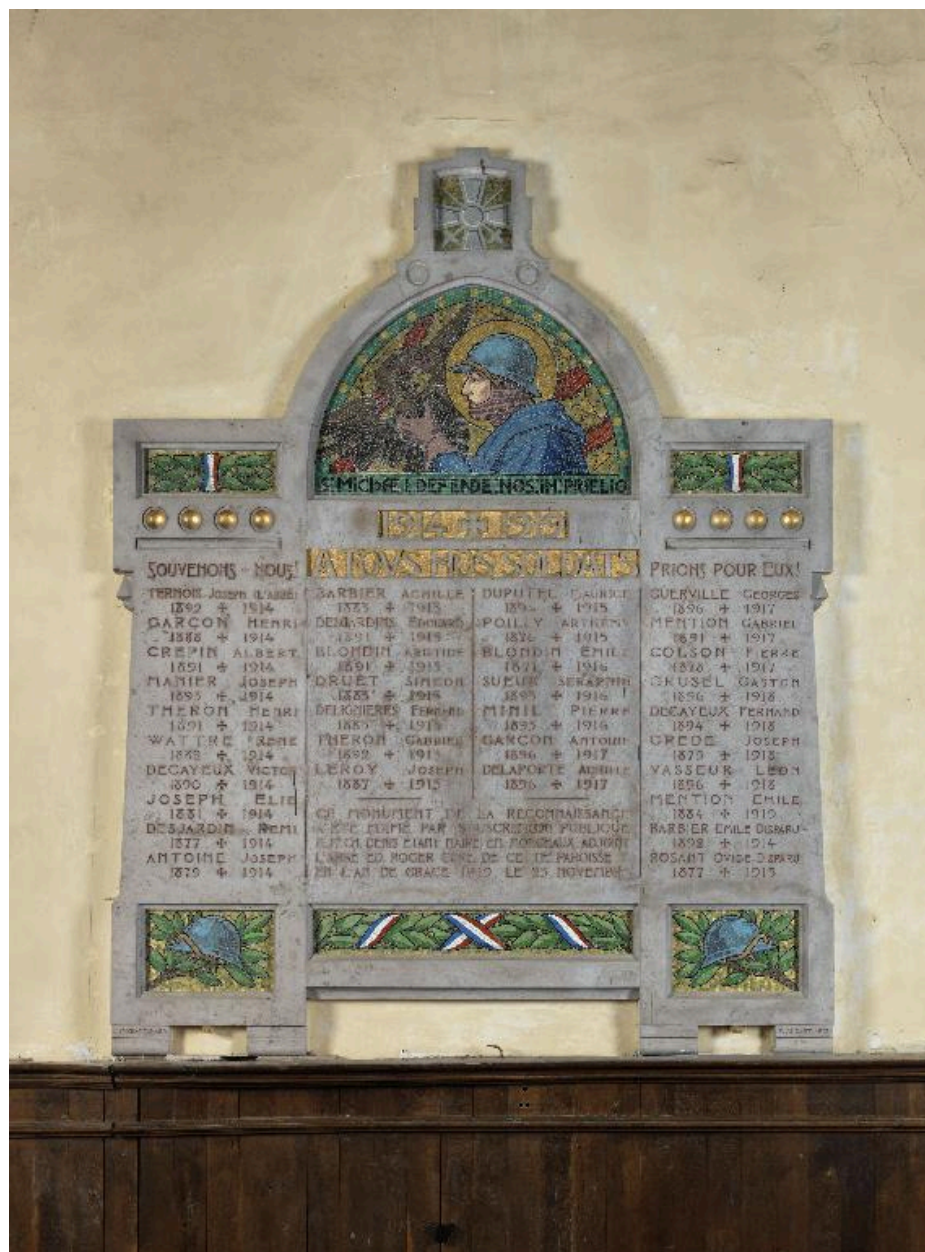 S. MICHAEL DEFENDE NOS IN PRŒLIO
1914 + 1919
A TOVS NOS SOLDATS
SOUVENONS-NOUS!
TERNOIS JOSEPH (L'ABBÉ)
1892 + 1914
GARÇON HENRI
1888 + 1914
CREPIN ALBERT
1891 + 1914
MANIER JOSEPH
1893 + 1914
THERON HENRI
1891 + 1914
WATTRE RENE
1882 + 1914
DECAYEUX VICTOR
1890 + 1914
JOSEPH ELIE
1881 + 1914
DESJARDIN REMI
1877 + 1914
ANTOINE JOSEPH
1879 + 1914
BARBIER ACHILLE
1883 + 1915
DESJARDINS EDOUARD
1891 + 1915
BLONDIN ARISTIDE
1891 + 1915
DRUET SIMEON
1883 + 1915
DELIGNIERES FERNAND
1885 + 1915
THERON GABRIEL
1892 + 1915
LEROY JOSEPH
1887 + 1915
DUPUTEL MAURICE
+ 1915
POILLY
1876 + 1915
BLONDIN EMILE
1871 + 1916
SUEUR SERAPHIN
1895 + 1916
MINIL PIERRE
1895 + 1916
GARÇON ANTOINE
1896 + 1917
DELAPORTE ACHILLE
1896 + 1917
CE MONUMENT DE LA RECONNAISSANCE
A ÉTÉ EDIFIÉ PAR SOUSCRIPTION PUBLIQUE
DENIS ETANT MAIRE, EM. MORGEAUX ADJOINT
L'ABBE ED. ROGER CURE DE CETTE PAROISSE
EN L'AN DE GRACE 1919 LE 23 NOVEMBRE
PRIONS POUR EUX!
GUERVILLE GEORGES
1896 + 1917
MENTION GABRIEL
1891 + 1917
COLSON PIERRE
1878 + 1917
CRUSEL GASTON
1896 + 1918
DECAYEUX FERNAND
1894 + 1918
GREDE JOSEPH
1879 + 1918
VASSEUR LEON
1896 + 1918
MENTION EMILE
1884 + 1919
BARBIER EMILE DISPARU
1892 + 1914
ROSANT OVIDE DISPARU
1877 + 1915